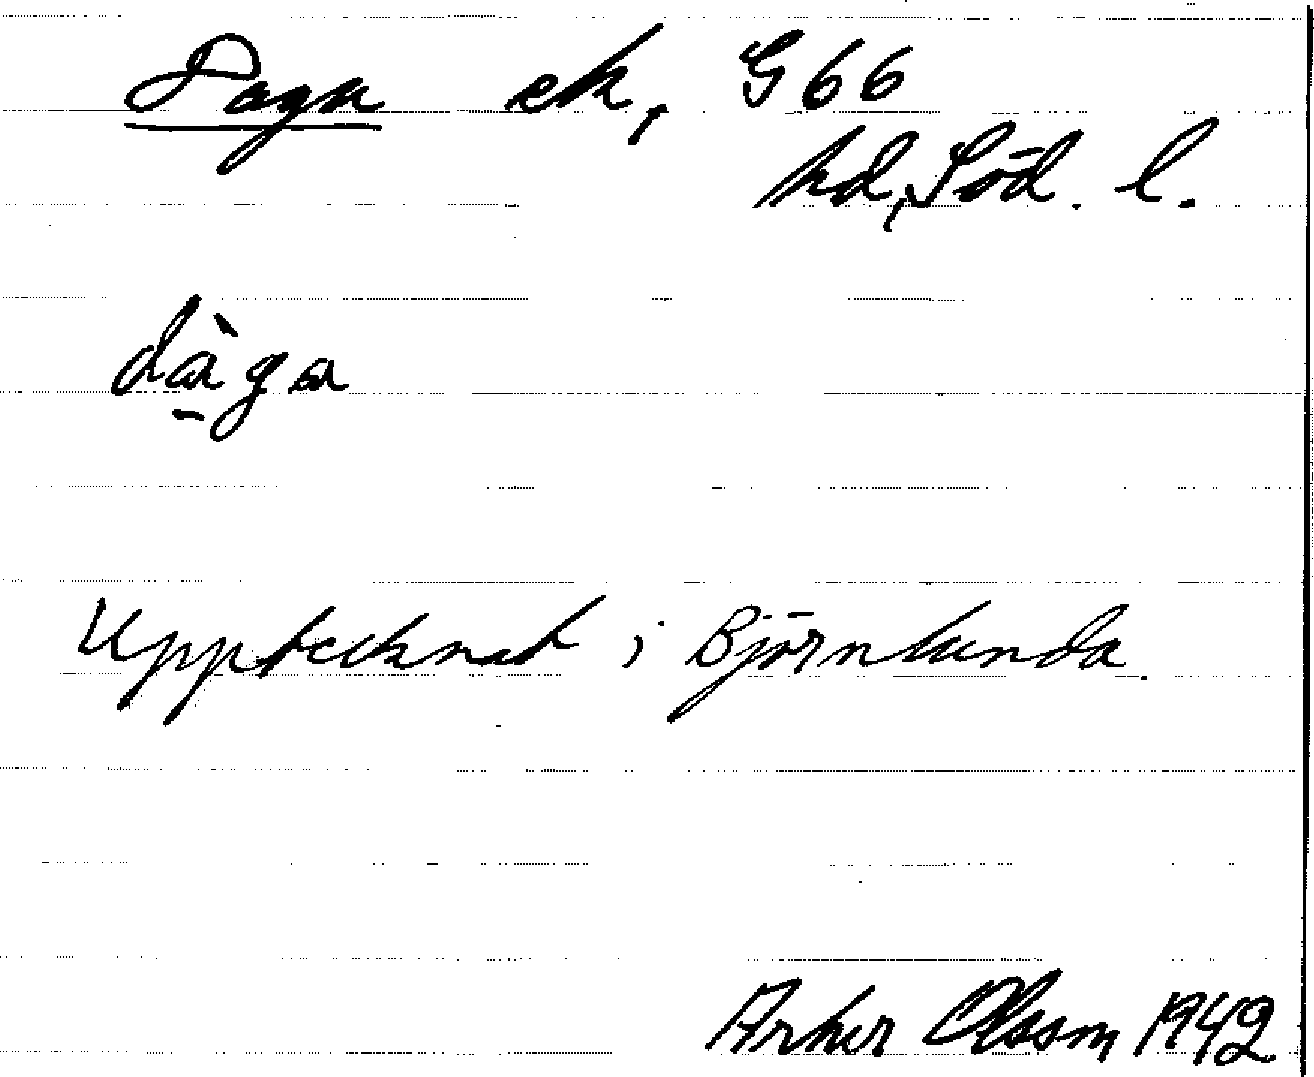 Daga ek, G 66
hd, Söd. l.
dàga
Upptecknat i Björnlunda.
Olsson 1942